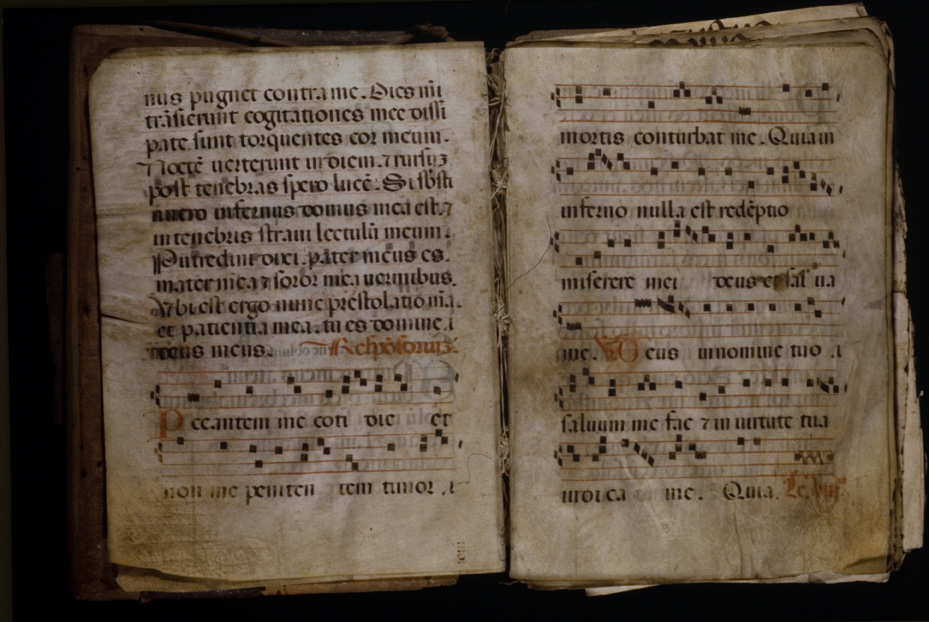 nus pugnet contra me. Dies mī
trāsierunt cogitationes mee dissi
pate sunt torquentes cor meum.
Noctē uerterunt in diem. ⁊ rursuȝ
post tenebras spero lucē. Si sbsti
nuero infernus domus mea est. ⁊
in tenebris straui lectulū meum.
Putredini dixi. pater meus es.
mater mea ⁊ soror mea uermibus.
Vbi est ergo nunc prestolatio m̄a.
et patientia mea. tu es domine .i
deus meus. Respōsoriuȝ.
Peccantem me coti die et
non me peniten tem timor .i
mortis conturbat me. Quia in
inferno nulla est redēptio
miserere mei deus et sal ua
me. Deus in nomine tuo .i
saluum me fac ⁊ in uirtute tua
iudica me. Quia.